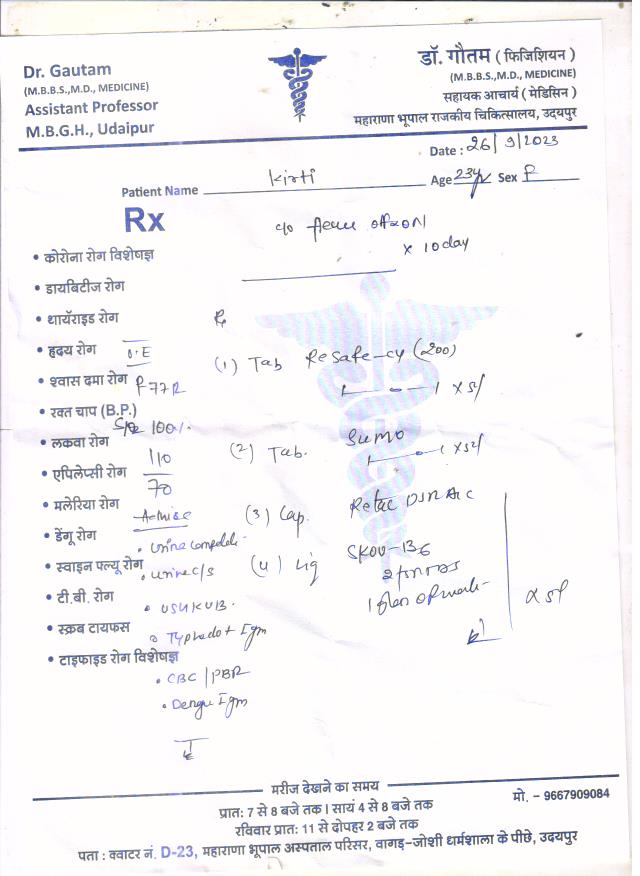 Dr. Gautam
(M.B.B.S.,M.D., MEDICINE)
Assistant Professor
M.B.G.H., Udaipur
डॉ. गौतम ( फिजिशियन )
(M.B.B.S.,M.D., MEDICINE)
सहायक आचार्य ( मेडिसिन )
महाराणा भूपाल राजकीय चिकित्सालय, उदयपुर
Date : 26/9/2023
Patient Name Kirti Age 23y Sex F
Rx
c/o
x 10 day
• कोरोना रोग विशेषज्ञ
• डायबिटीज रोग
• थायॅराइड रोग
• हृदय रोग O.E
(1) Tab Resafe-cy (200)
• श्वास दमा रोग P 77
1 — 1 x 5d
• रक्त चाप (B.P.)
SPO2 100%
• लकवा रोग
110
70
(2) Tab. Sumo
1 — 1 x 5d
• एपिलेप्सी रोग
• मलेरिया रोग
Advise
(3) Cap.
• डेंगू रोग
• Urine complete
• स्वाइन फ्ल्यू रोग
• Urine C/S
(4) Liq
x 5d
• टी.बी. रोग
• USG KUB
• स्क्रब टायफस
• Typhidot IgM
• टाइफाइड रोग विशेषज्ञ
• CBC / PBF
• Dengue IgM
मरीज देखने का समय
प्रात: 7 से 8 बजे तक। सायं 4 से 8 बजे तक
मो. - 9667909084
रविवार प्रात: 11 से दोपहर 2 बजे तक
पता : क्वाटर नं. D-23, महाराणा भूपाल अस्पताल परिसर, वागड़-जोशी धर्मशाला के पीछे, उदयपुर